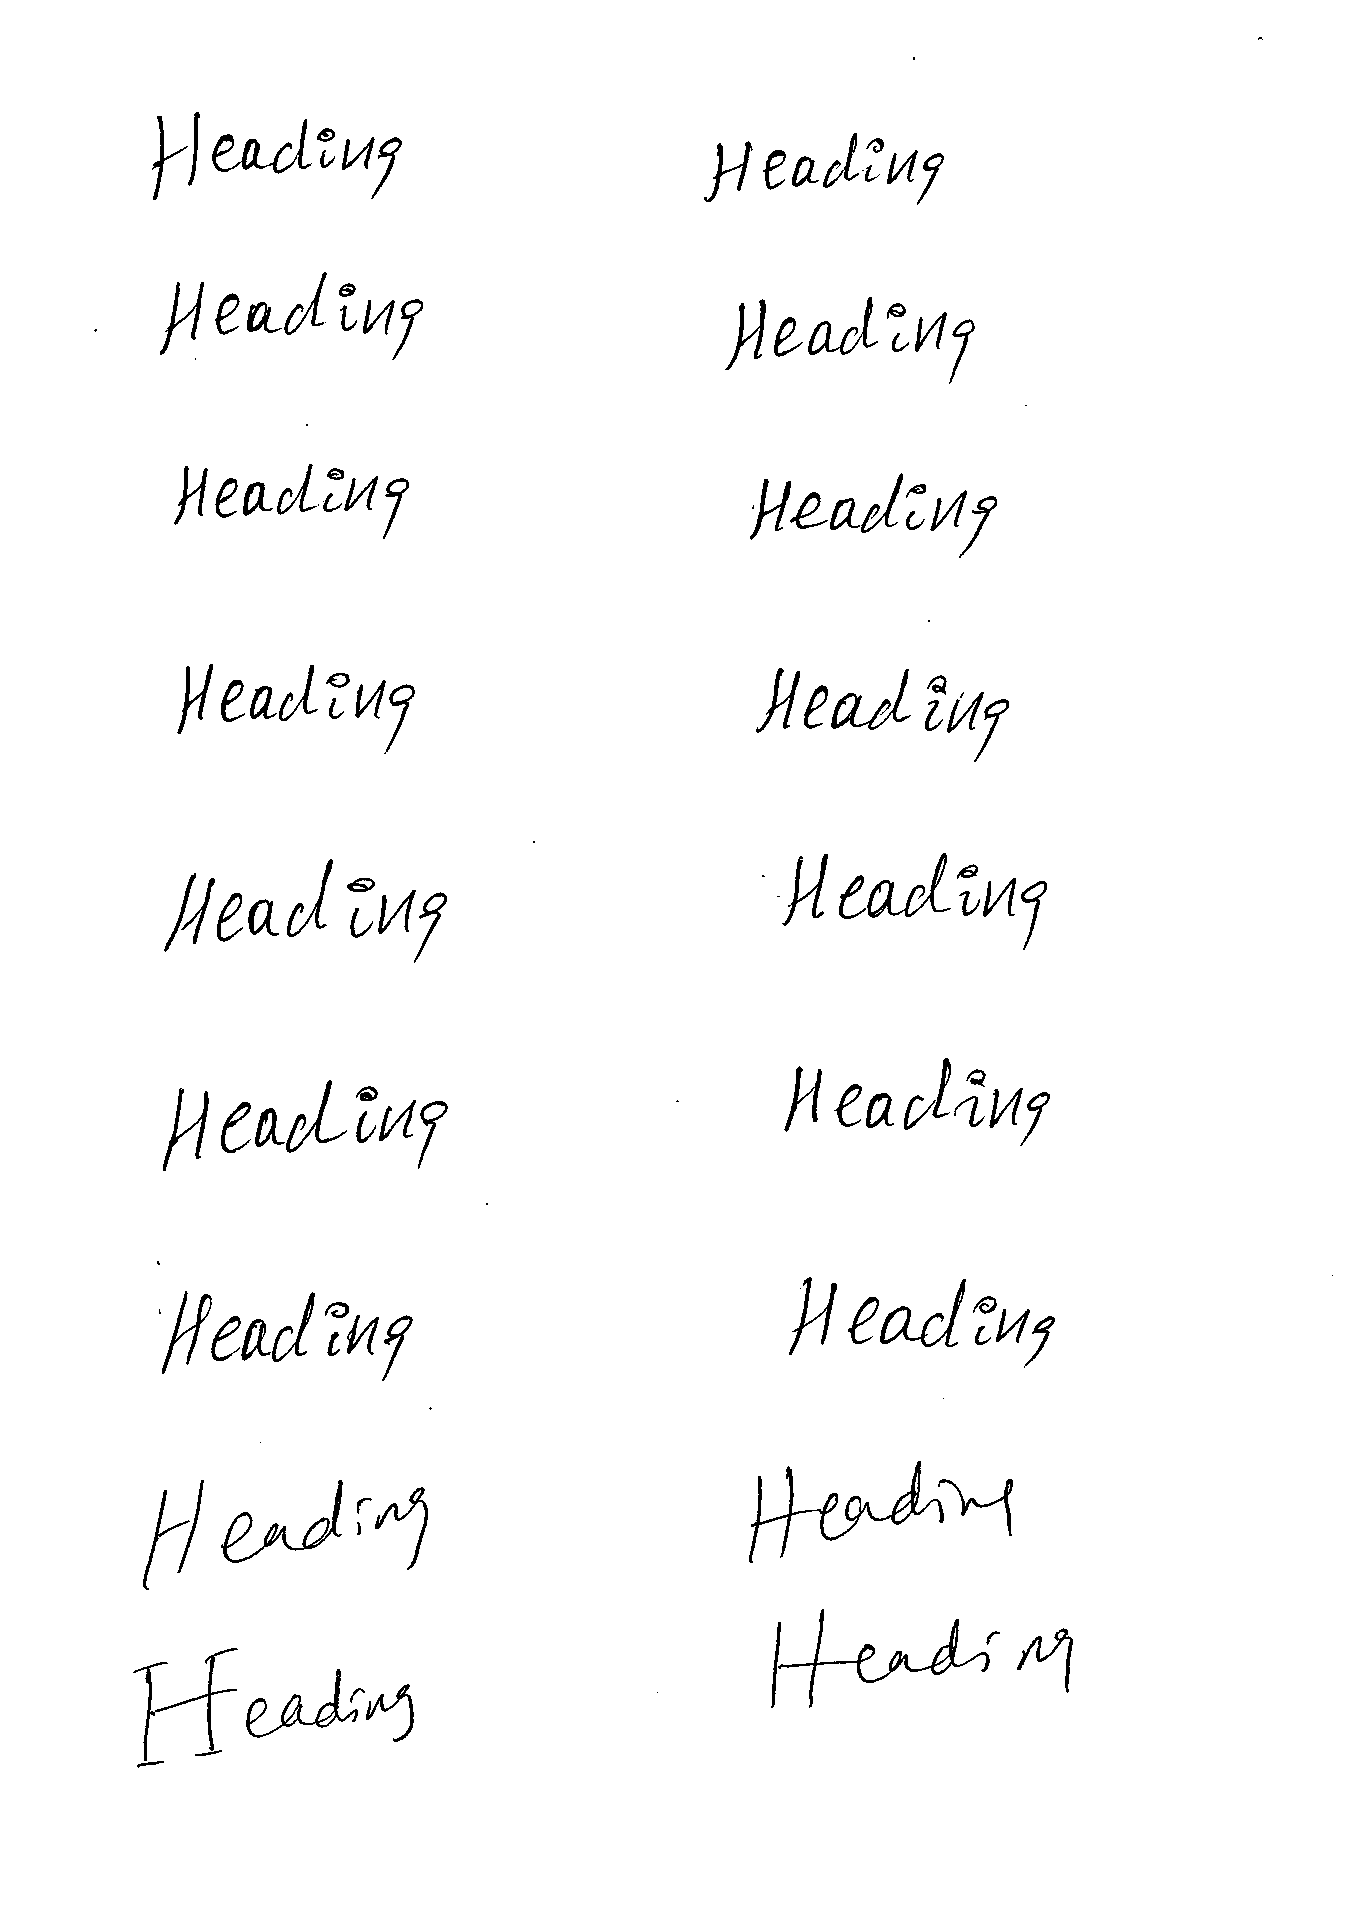 Heading Heading
Heading Heading
Heading Heading
Heading Heading
Heading Heading
Heading Heading
Heading Heading
Heading Heading
Heading Heading